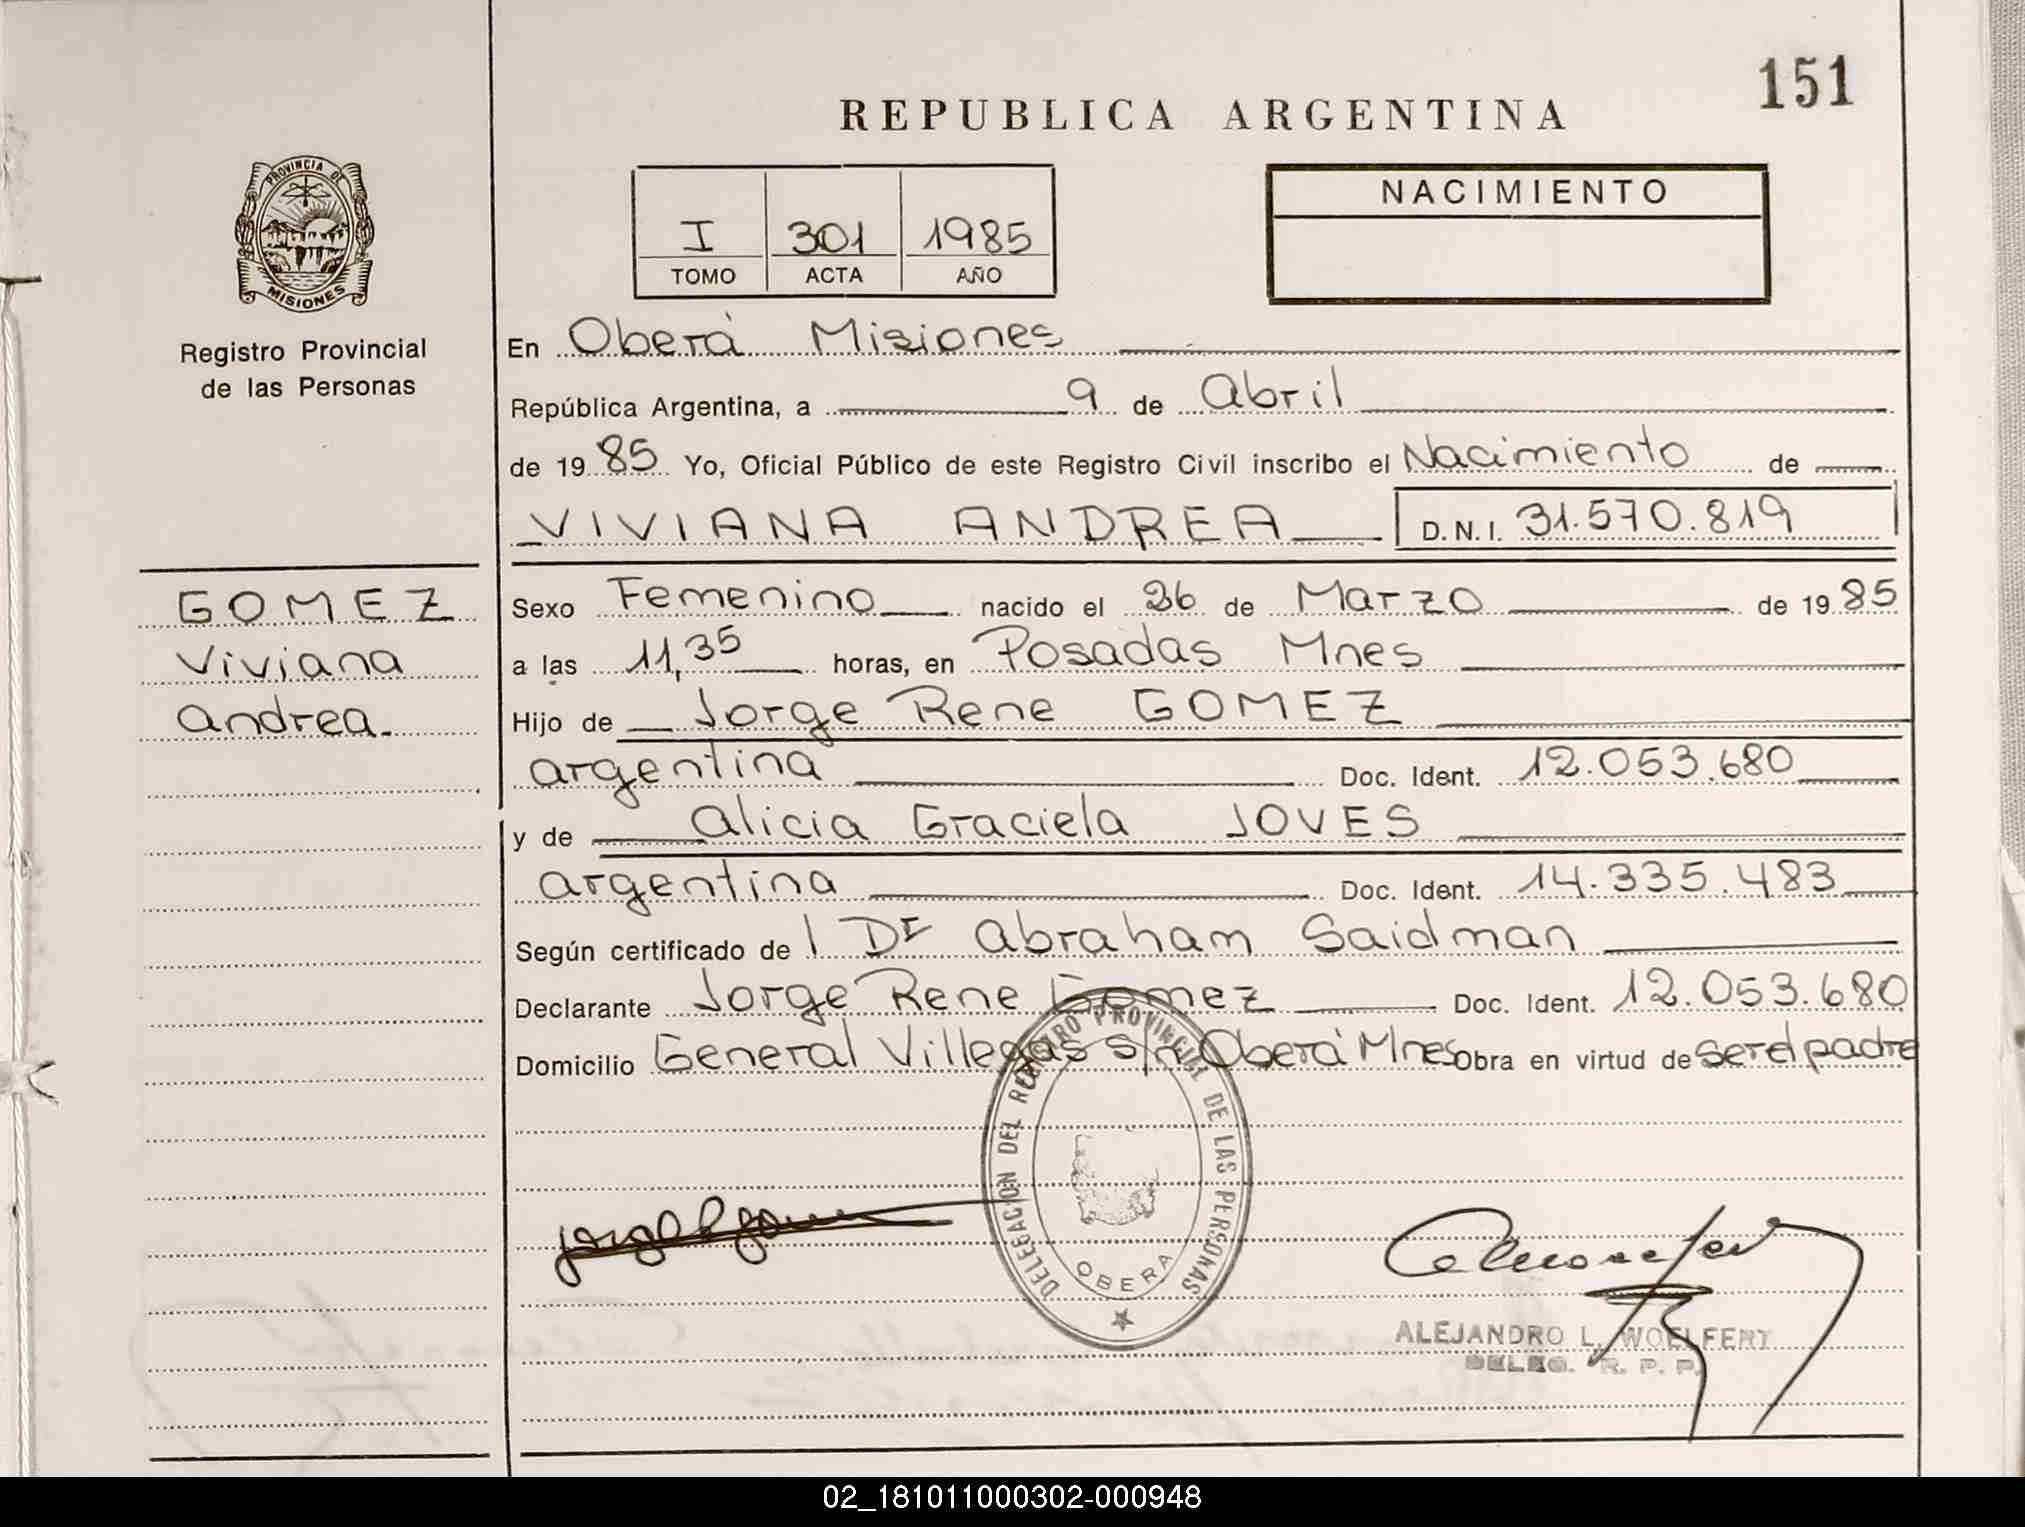 151
REPUBLICA ARGENTINA
PROVINCIA DE
MISIONES
Registro Provincial
de las Personas
I 301 1985
TOMO ACTA AÑO
NACIMIENTO
En Oberá Misiones
República Argentina, a 9 de Abril
de 1985 Yo, Oficial Público de este Registro Civil inscribo el Nacimiento de
VIVIANA ANDREA D.N.I. 31.570.819
GOMEZ
Viviana
Andrea.
Sexo Femenino nacido el 26 de Marzo de 1985
a las 11,35 horas, en Posadas Mnes
Hijo de Jorge Rene GOMEZ
argentina Doc. Ident. 12.053.680
y de Alicia Graciela JOVES
argentina Doc. Ident. 14.335.483
Según certificado de l Dr Abraham Saidman
Declarante Jorge Rene Gomez Doc. Ident. 12.053.680
Domicilio General Villegas s/n Oberá Mnes Obra en virtud de ser el padre
DELEGACION DEL REGISTRO PROVINCIAL DE LAS PERSONAS
OBERA
ALEJANDRO L. WOELFERT
DELEG. R. P. P.
02_181011000302-000948